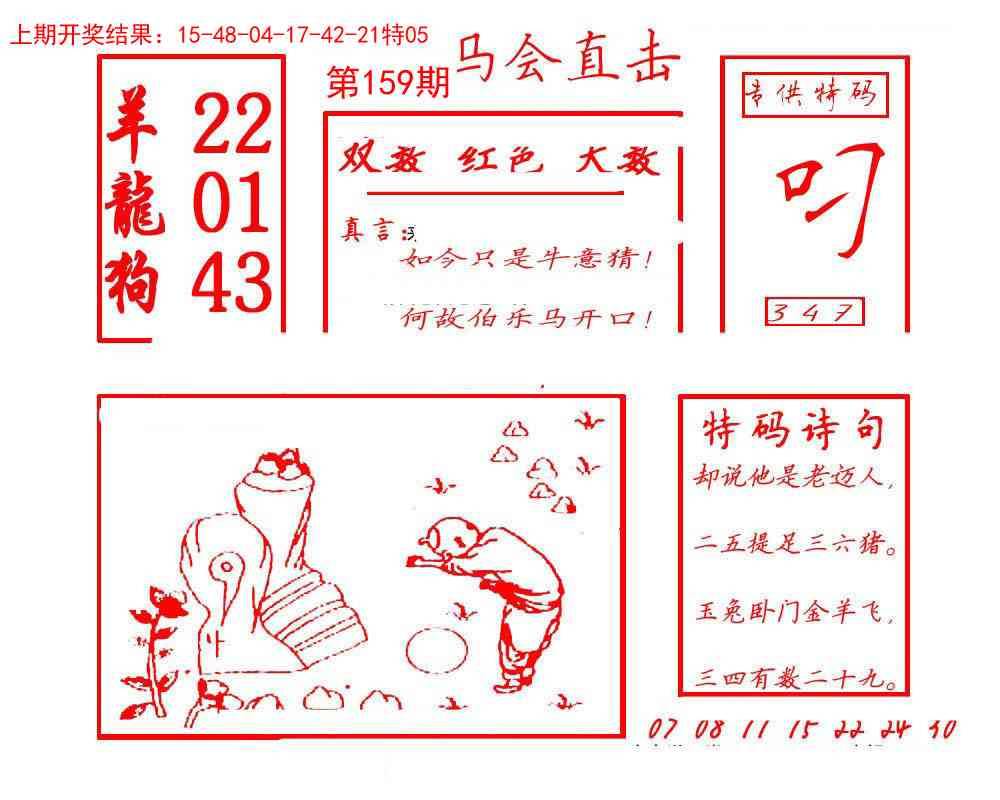 上期开奖结果：15-48-04-17-42-21特05
第159期
马会直击
羊 22
龍 01
狗 43
双数 红色 大数
真言：
如今只是牛意猜！
何故伯乐马开口！
专供特码
叼
3 4 7
特码诗句
却说他是老迈人，
二五提足三六猪。
玉兔卧门金羊飞，
三四有数二十九。
07 08 11 15 22 24 40